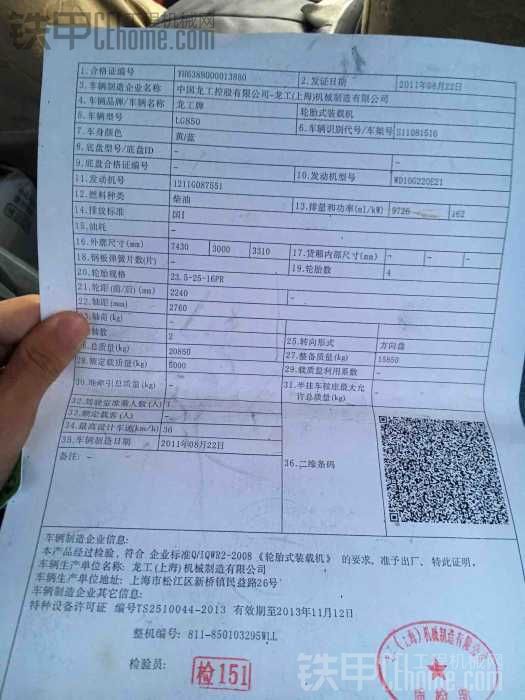 铁甲工程机械网
Cehome.com
1.合格证编号 YH6389000013880 2.发证日期 2011年08月22日
3.车辆制造企业名称 中国龙工控股有限公司-龙工(上海)机械制造有限公司
4.车辆品牌/车辆名称 龙工牌 轮胎式装载机
5.车辆型号 LG850 6.车辆识别代号/车架号 S11081516
7.车身颜色 黄/蓝
8.底盘型号/底盘ID - -
9.底盘合格证编号 - 10.发动机型号 WD10G220E21
11.发动机号 1211G087551
12.燃料种类 柴油 13.排量和功率(ml/kW) 9726 162
14.排放标准 国I
15.油耗 -
16.外廓尺寸(mm) 7430 3000 3310 17.货厢内部尺寸(mm) - - -
18.钢板弹簧片数(片) - 19.轮胎数 4
20.轮胎规格 23.5-25-16PR
21.轮距(前/后)(mm) 2240 -
22.轴距(mm) 2760
轴荷(kg) -
轴数 2 25.转向形式 方向盘
总质量(kg) 20850 27.整备质量(kg) 15850
28.额定载质量(kg) 5000 29.载质量利用系数 -
30.准牵引总质量(kg) - 31.半挂车鞍座最大允许总质量(kg) -
32.驾驶室准乘人数(人) 1
33.额定载客(人) -
34.最高设计车速(km/h) 36
35.车辆制造日期 2011年08月22日
备注: -
36.二维条码
车辆制造企业信息:
本产品经过检验,符合 企业标准Q/IQWR2-2008《轮胎式装载机》 的要求,准予出厂,特此证明。
车辆生产单位名称: 龙工(上海)机械制造有限公司
车辆生产单位地址: 上海市松江区新桥镇民益路26号
车辆制造企业其它信息:
特种设备许可证 编号TS2510044-2013 有效期至2013年11月12日
整机编号: 811-850103295WLL
检验员: 检151
工(上海)机械制造有限公
质检
铁甲工程机械网
Cehome.com